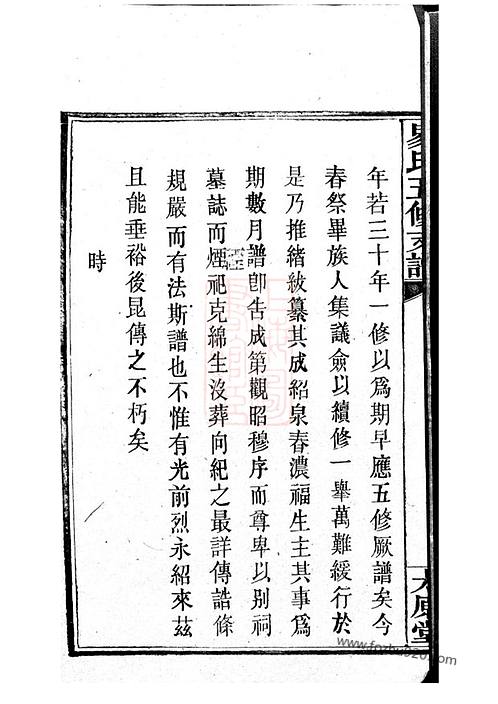 年若三十年一修以爲期早應五修厥譜矣今
春祭畢族人集議僉以續修一舉萬難緩行於
是乃推緒紱纂其成紹泉春濃福生主其事爲
期數月譜卽告成第觀昭穆序而尊卑以别祠
墓誌而煙祀克綿生沒葬向紀之最詳傳誥條
規嚴而有法斯譜也不惟有光前烈永紹來茲
且能垂裕後昆傳之不朽矣
時
五修支譜
www.fozhu920.com